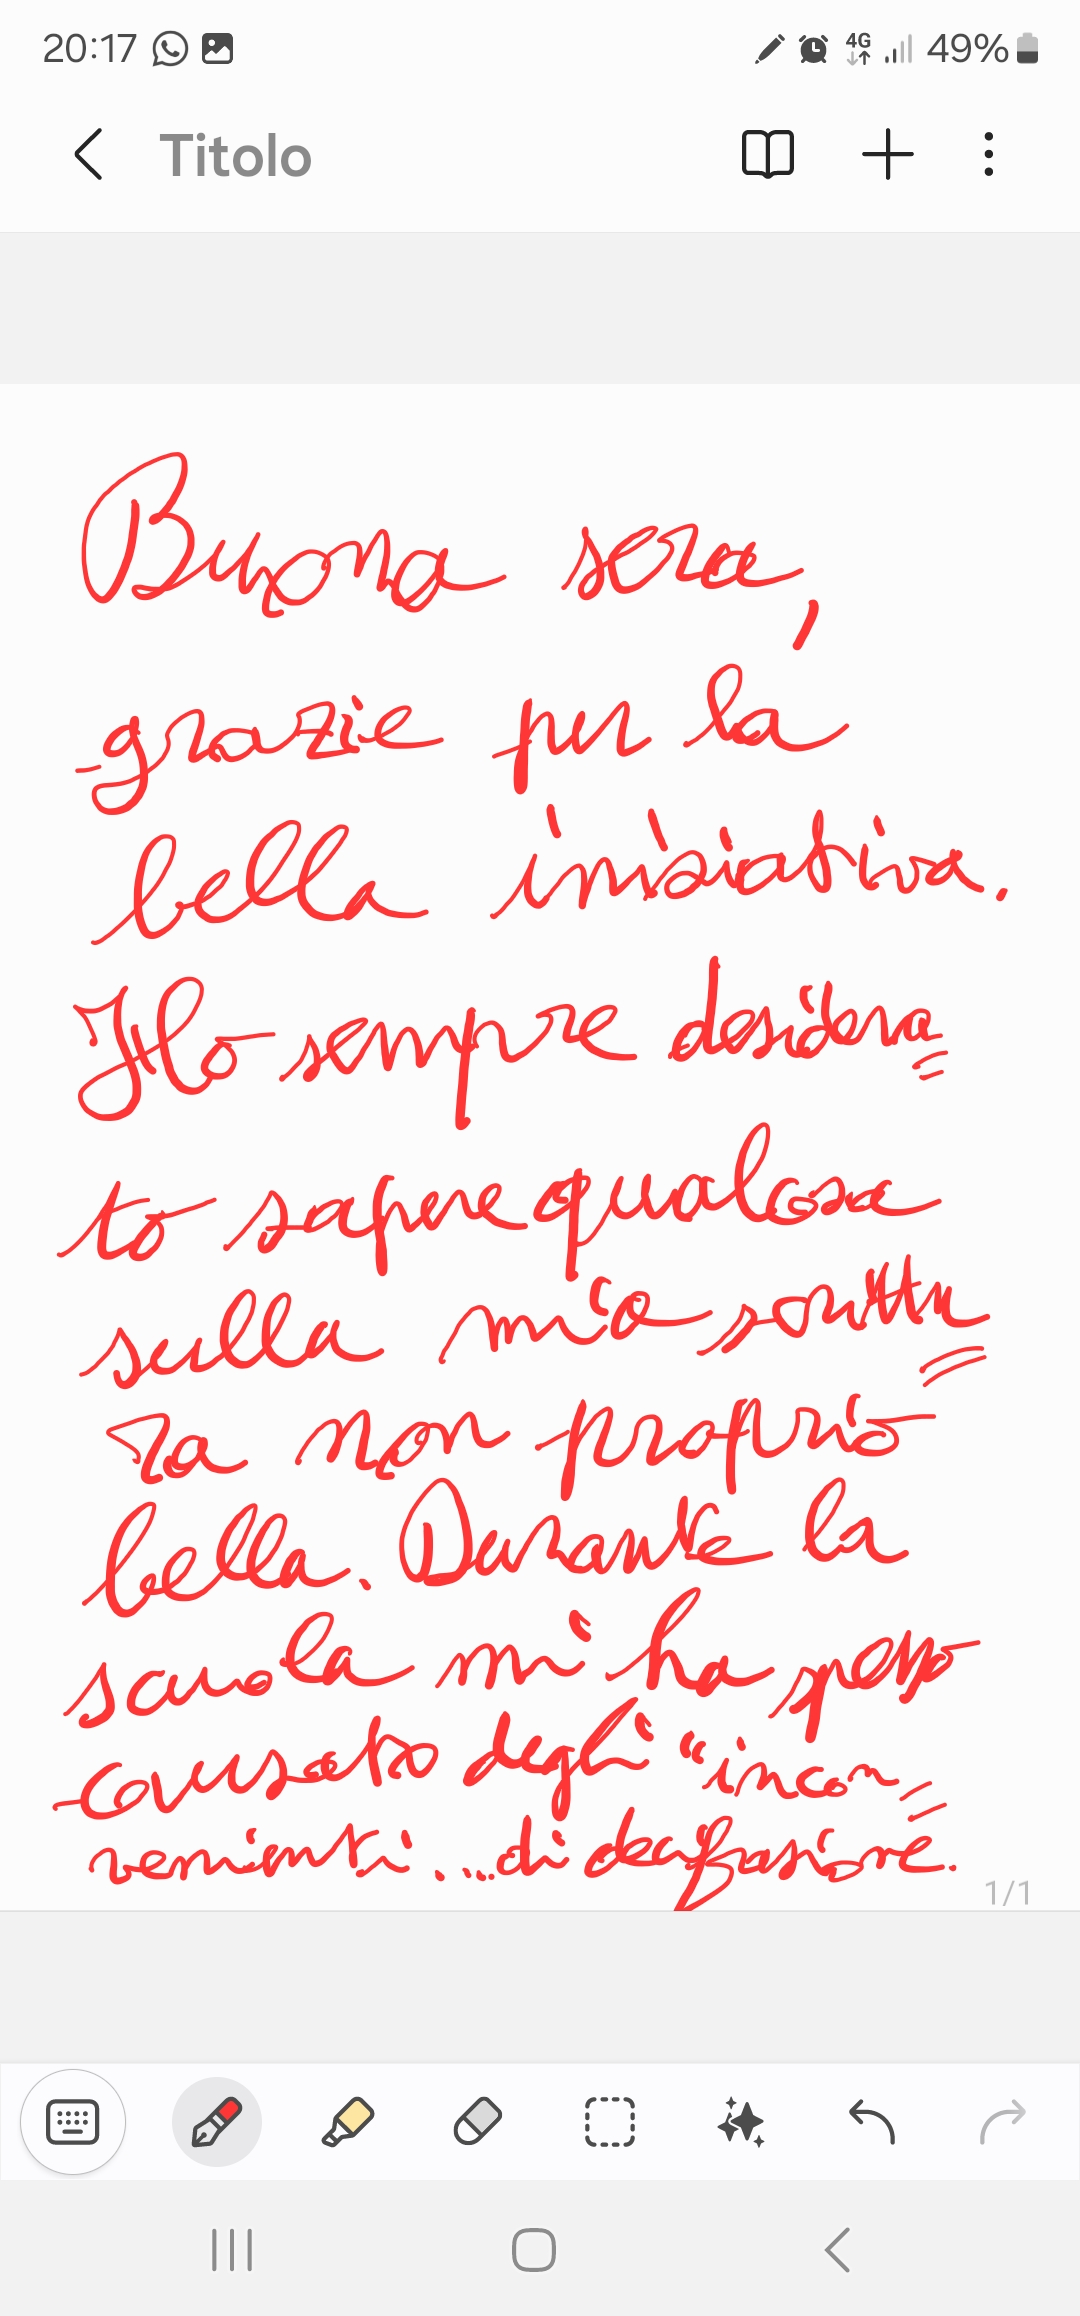 20:17 4G 49%
Titolo
Buona sera,
grazie per la
bella iniziativa.
Ho sempre desidera=
to sapere qualcosa
sulla mia scrittu=
ra non proprio
bella. Durante la
scuola mi ha spesso
causato degli "incon=
venienti... di decifrazione.
1/1